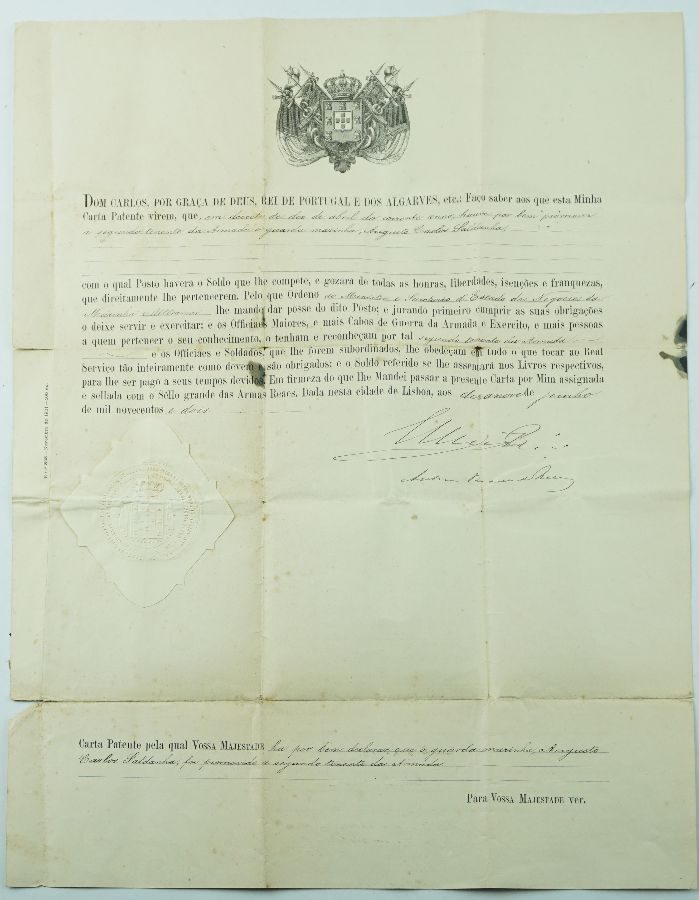 DOM CARLOS, POR GRAÇA DE DEUS, REI DE PORTUGAL E DOS ALGARVES, etc.: Faço saber aos que esta Minha
Carta Patente virem, que, em decreto de dez de abril do corrente anno, houve por bem promover
a segundo tenente da Armada o guarda marinha, Augusto Carlos Saldanha,
com o qual Posto haverá o Soldo que lhe compete, e gozará de todas as honras, liberdades, isenções e franquezas,
que direitamente lhe pertencerem. Pelo que Ordeno ao Ministro e Secretario d'Estado dos Negocios da
Marinha e Ultramar lhe mande dar posse do dito Posto; e jurando primeiro cumprir as suas obrigações
o deixe servir e exercitar; e os Officiaes Maiores, e mais Cabos de Guerra da Armada e Exercito, e mais pessoas
a quem pertencer o seu conhecimento, o tenham e reconheçam por tal segundo tenente da armada
e os Officiáes e Soldados, que lhe forem subordinados, lhe obedeçam em tudo o que tocar ao Real
Serviço tão inteiramente como devem e são obrigados: e o Soldo referido se lhe assentará nos Livros respectivos,
para lhe ser pago a seus tempos devidos. Em firmeza do que lhe Mandei passar a presente Carta por Mim assignada
e sellada com o Sêllo grande das Armas Reaes. Dada nesta cidade de Lisboa, aos dezanove de junho
de mil novecentos e dois
Carta Patente pela qual VOSSA MAJESTADE ha por bem declarar que o guarda marinha, Augusto
Carlos Saldanha, foi promovido a segundo tenente da Armada
Para VOSSA MAJESTADE ver.